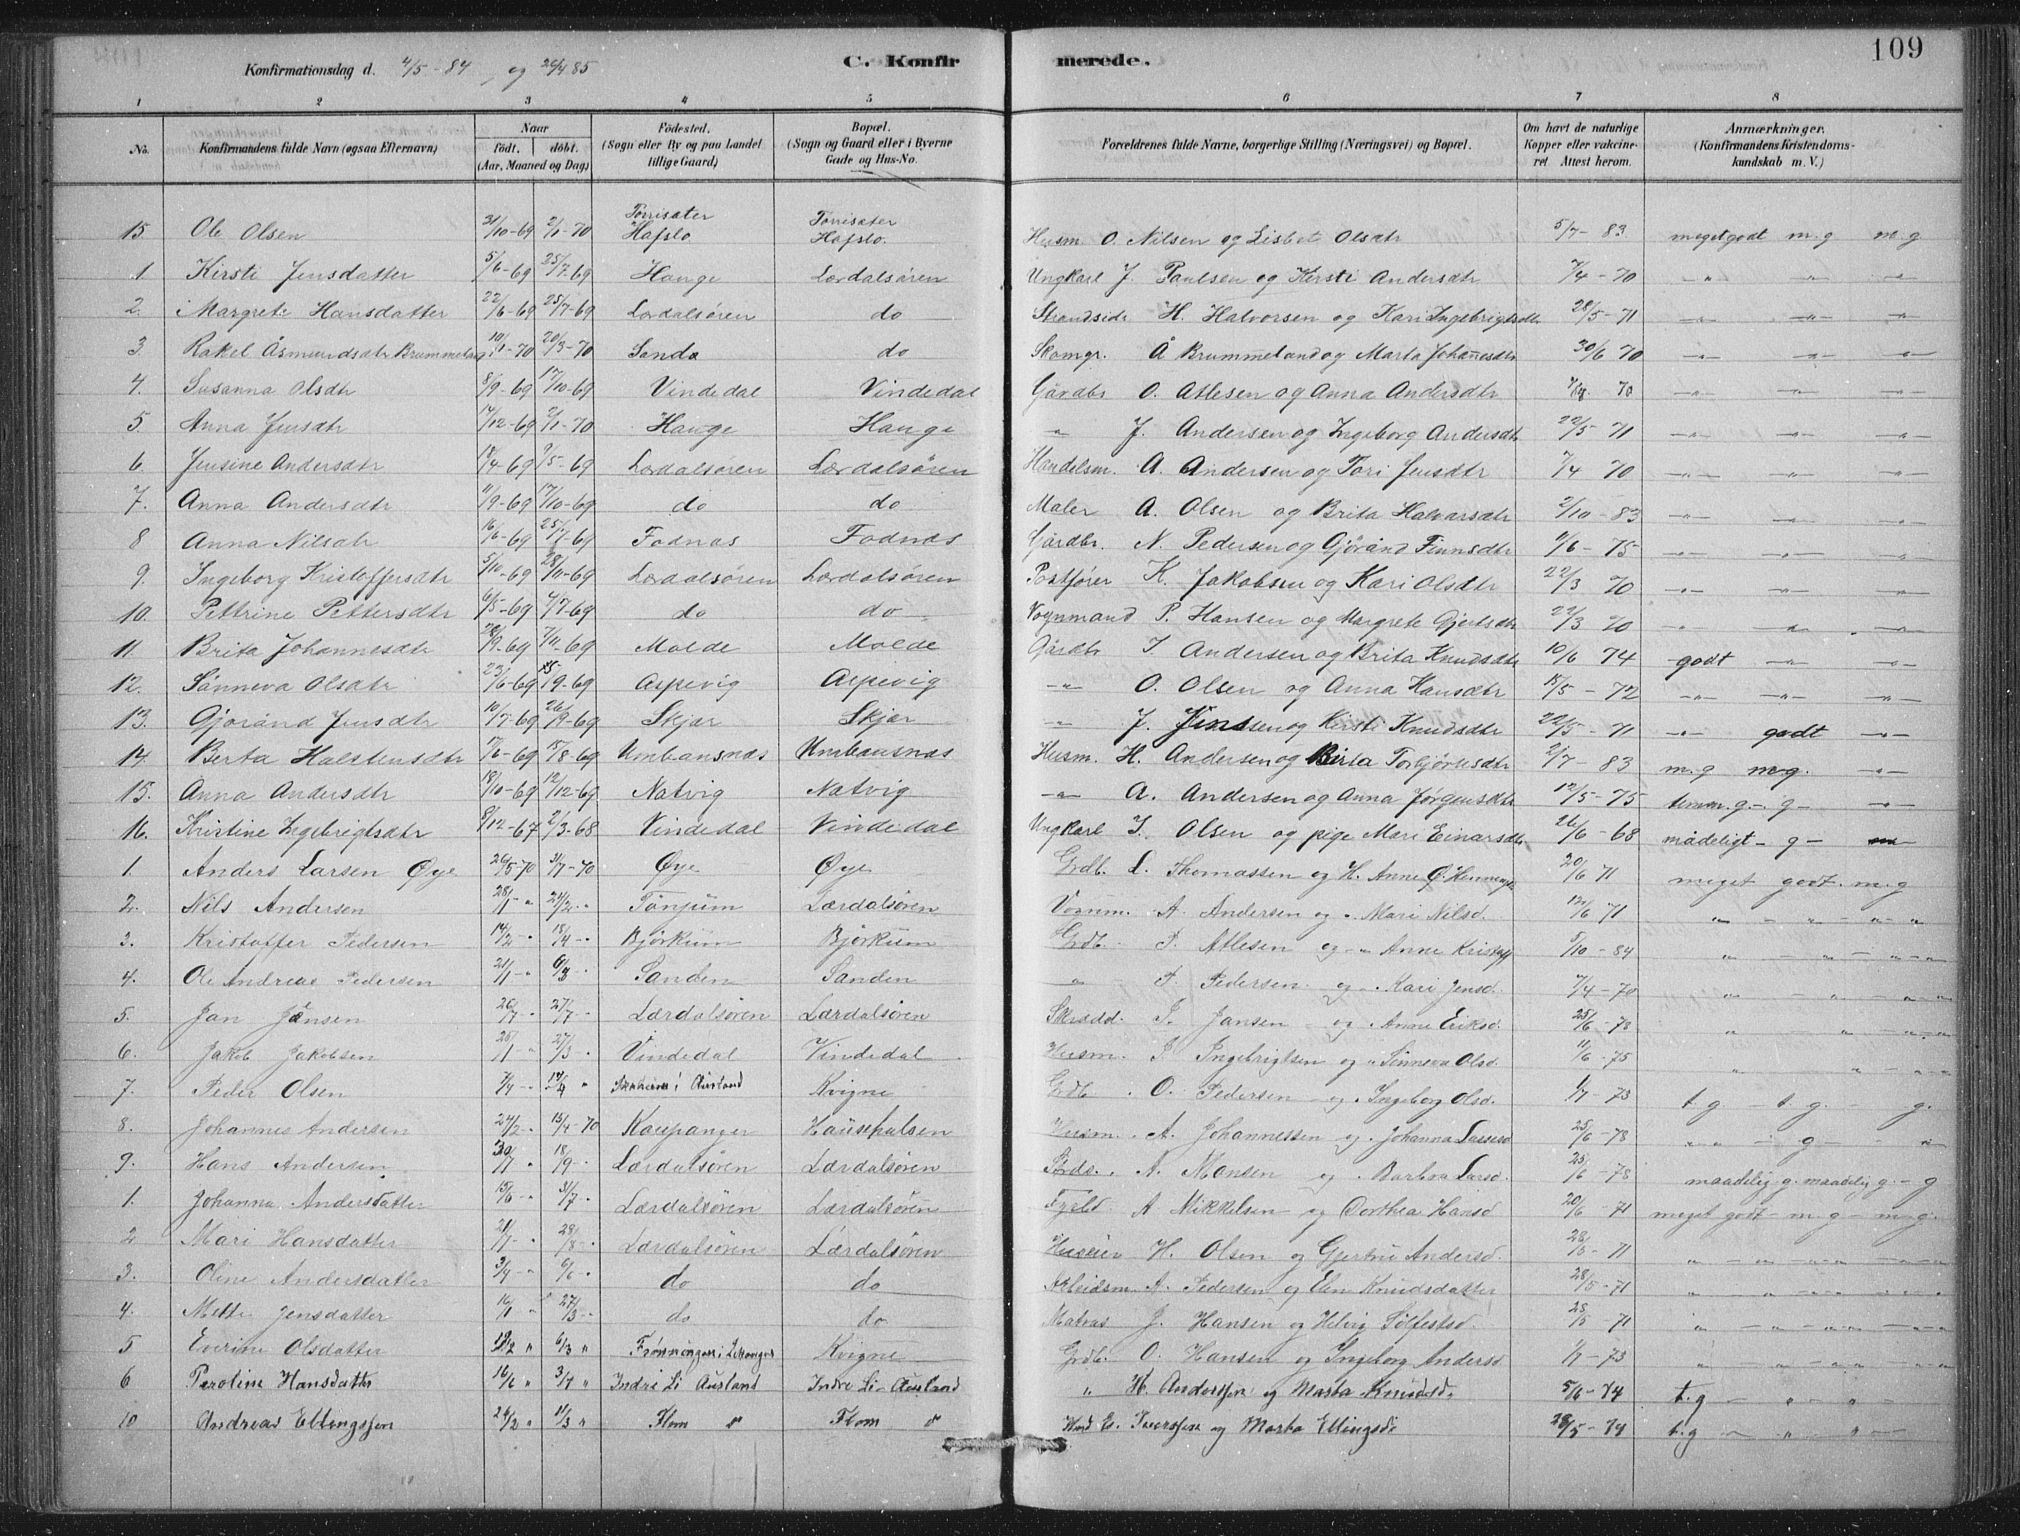 109
Konfirmationsdag d. 4/5-84, og 26/4 85
C. Konfirmerede.
1 2 3 4 5 6 7 8
No. Konfirmandens fulde Navn (ogsaa Efternavn) Naar født. døbt. (Aar, Maaned og Dag) Fødested. (Sogn eller By og paa Landet tillige Gaard) Bopæl. (Sogn og Gaard eller i Byerne Gade og Hus-No. Forældrenes fulde Navne, borgerlige Stilling (Næringsvei) og Bopæl. Om havt de naturlige Kopper eller vakcineret. Attest herom. Anmærkninger. (Konfirmandens Kristendomskundskab m. V.)
15 Ole Olsen 31/10-69 2/1-70 Torrisæter Hafslo Torrisæter Hafslo. Husm O. Nilsen og Lisbet Olsdtr 5/7-83 megetgodt m.g m.g
1. Kirsti Jensdatter 5/6-69 25/7-69 Hauge Lærdalsøren Ungkarl J. Paulsen og Kirsti Andersdtr 7/4-70 -"- -"- -"-
2. Margrete Hansdatter 22/6-69 25/7-69 Lærdalsøren do Strandsid. H. Halvorsen og Kari Ingebrigtsdtr 28/5-71 -"- -"- -"-
3 Rakel Åsmundsdtr Brummeland 10/1-70 20/3-70 Sanda do Skomgr. Å Brummeland og Marta Johannesdtr 30/6 70 -"- -"- -"-
4. Susanna Olsdtr 8/9-69 17/10-69 Vindedal Vindedal Gårdbr O. Atlesen og Anna Andersdtr 70 -"- -"- -"-
5. Anna Jensdtr 17/12-69 2/1-70 Hauge Hauge -"- J. Andersen og Ingeborg Andersdtr 22/5-71 -"- -"- -"-
6. Jensine Andersdtr 18/4-69 9/5-69 Lærdalsøren Lærdalsøren Handelsm. A. Andersen og Tori Jensdtr 7/4 70 -"- -"- -"-
7. Anna Andersdtr 11/9-69 17/10-69 do do Maler A. Olsen og Brita Halvarsdtr 2/10-83 -"- -"- -"-
8 Anna Nilsdtr 16/6-69 25/7-69 Fodnæs Fodnæs Gårdbr. N. Pedersen og Gjøránd Finnsdtr 11/6-75 -"- -"- -"-
9. Ingeborg Kristoffersdtr 5/10-69 28/11-69 Lærdalsøren Lærdalsøren Postfører K. Jakobsen og Kari Olsdtr 22/3 70 -"- -"- -"-
10. Pettrine Pettersdtr 6/5-69 4/7-69 do do Vognmand P. Hansen og Margrete Gjertsdtr 22/3 70 -"- -"- -"-
11. Brita Johannesdtr 28/9-69 7/11-69 Molde Molde Gårdbr J. Andersen og Brita Knudsdtr 10/6 74 godt -"- -"-
12. Sønneva Olsdtr 23/6-69 15/9-69 Aspevig Aspevig -"- O. Olsen og Anna Hansdtr 15/5-72 -"- -"- -"-
13. Gjøránd Jensdtr 10/7-69 26/9-69 Skjær Skjær -"- J. Jensen og Kirsti Knudsdtr 22/5-71 -"- godt -"-
14. Berta Halstensdtr 17/6-69 15/8-69 Umbausnæs Umbausnæs Husm. H. Andersen og Birta Torbjørnsdtr 2/7-83 m.g m.g. -"-
15. Anna Andersdtr 18/10-69 12/12-69 Natvig Natvig -"- A. Andersen og Anna Jørgensdtr 12/5-75 temm.g - g - -"-
16. Kristine Ingebrigtsdtr 8/12-67 2/3-68 Vindedal Vindedal Ungkarl I. Olsen og pige Mari Einarsdtr 26/6-68 mådeligt - g -
1. Anders Larsen Øye 26/5-70 31/7-70 Øye Øye Grdb. L. Thomassen og H. Anne Ø. 20/6 71 meget godt. m.g
2. Nils Andersen 28/1 - " 24/2 - Tønjum Lærdalsøren Vognm. A. Andersen og " Mari Nilsd. 12/6 71 " - " - " - "
3. Kristoffer Pedersen 14/2 - " 18/4 - " Bjørkum Bjørkum Grdb. P. Atlesen og - " Anne Kristoff 5/10-84 " - " - " - "
4. Ole Andreas Pedersen 21/1 - " 6/3 - Sanden Sanden -"- P. Pedersen og " Kari Jensd. 7/4-70 " - " - " - "
5. Jan Jansen 26/7 - " 27/7 - Lærdalsøren Lærdalsøren Skrædd. J. Jansen og " Anne Eriksd. 25/6-78 " " - " - "
6. Jakob Jakobsen 25/1 " 27/3 - " Vindedal Vindedal Husm. J. Ingebrigtsen og " Sønneva Olsd. 11/6-75 " " - " - "
7. Peder Olsen 7/4 - " 17/4 " i Aurland Kvigne Grdb. O. Pedersen - og " Ingeborg Olsd. 1/7-73 t.g - t.g. - g.
8. Johannes Andersen 24/2 - " 13/4-70 Kaupanger Husm. A. Johannessen og " Johanna Lassesd 25/6-78 " " - g - - "
9. Hans Andersen 30/7 " 18/9 - Lærdalsøren Lærdalsøren A. Monsen og " Barbra Larsd. 25/6-78 maadelig g. maadelig g. - g
1. Johanna Andersdatter 15/6 " 31/7 - Lærdalsøren Lærdalsøren A. Nikkelsen og Dorthea Hansd 20/6-71 meget godt - m.g - m.g.
2 Mari Hansdatter 21/7 - " 28/8 - Lærdalsøren Lærdalsøren Huseier H. Olsen og Gjertru Andersd. 28/5-71 " - " - " - "
3. Oline Andersdatter 3/4 - " 6/6 - " do do Arbeidsm. A. Pedersen og Elen Knudsdatter 28/5-71 " - " - " - "
4. Mette Jensdatter 16/1 " 27/3 - " do do Matros J. Hansen og Helvig Sølfestsd. 28/5-71 " - " - " - "
5 Everine Olsdatter 19/2 " 6/3 " Frønningen i Lekanger Kvigne Grdb. O. Hansen og Ingeborg Andersd 1/7-73 " " - " - "
6 Peroline Hansdatter 16/6 " 3/7 " Indre Li Aurland Indre Li Aurland " H. Anderssen og Marta Knudsd. 5/6-74 t.g - " - " - "
10 Andreas Ellingssen 24/2 " 11/3 " Flom " Flom " Husd E. Iverssen og Marta Ellingsd. 28/5-74 t.g - " " - "